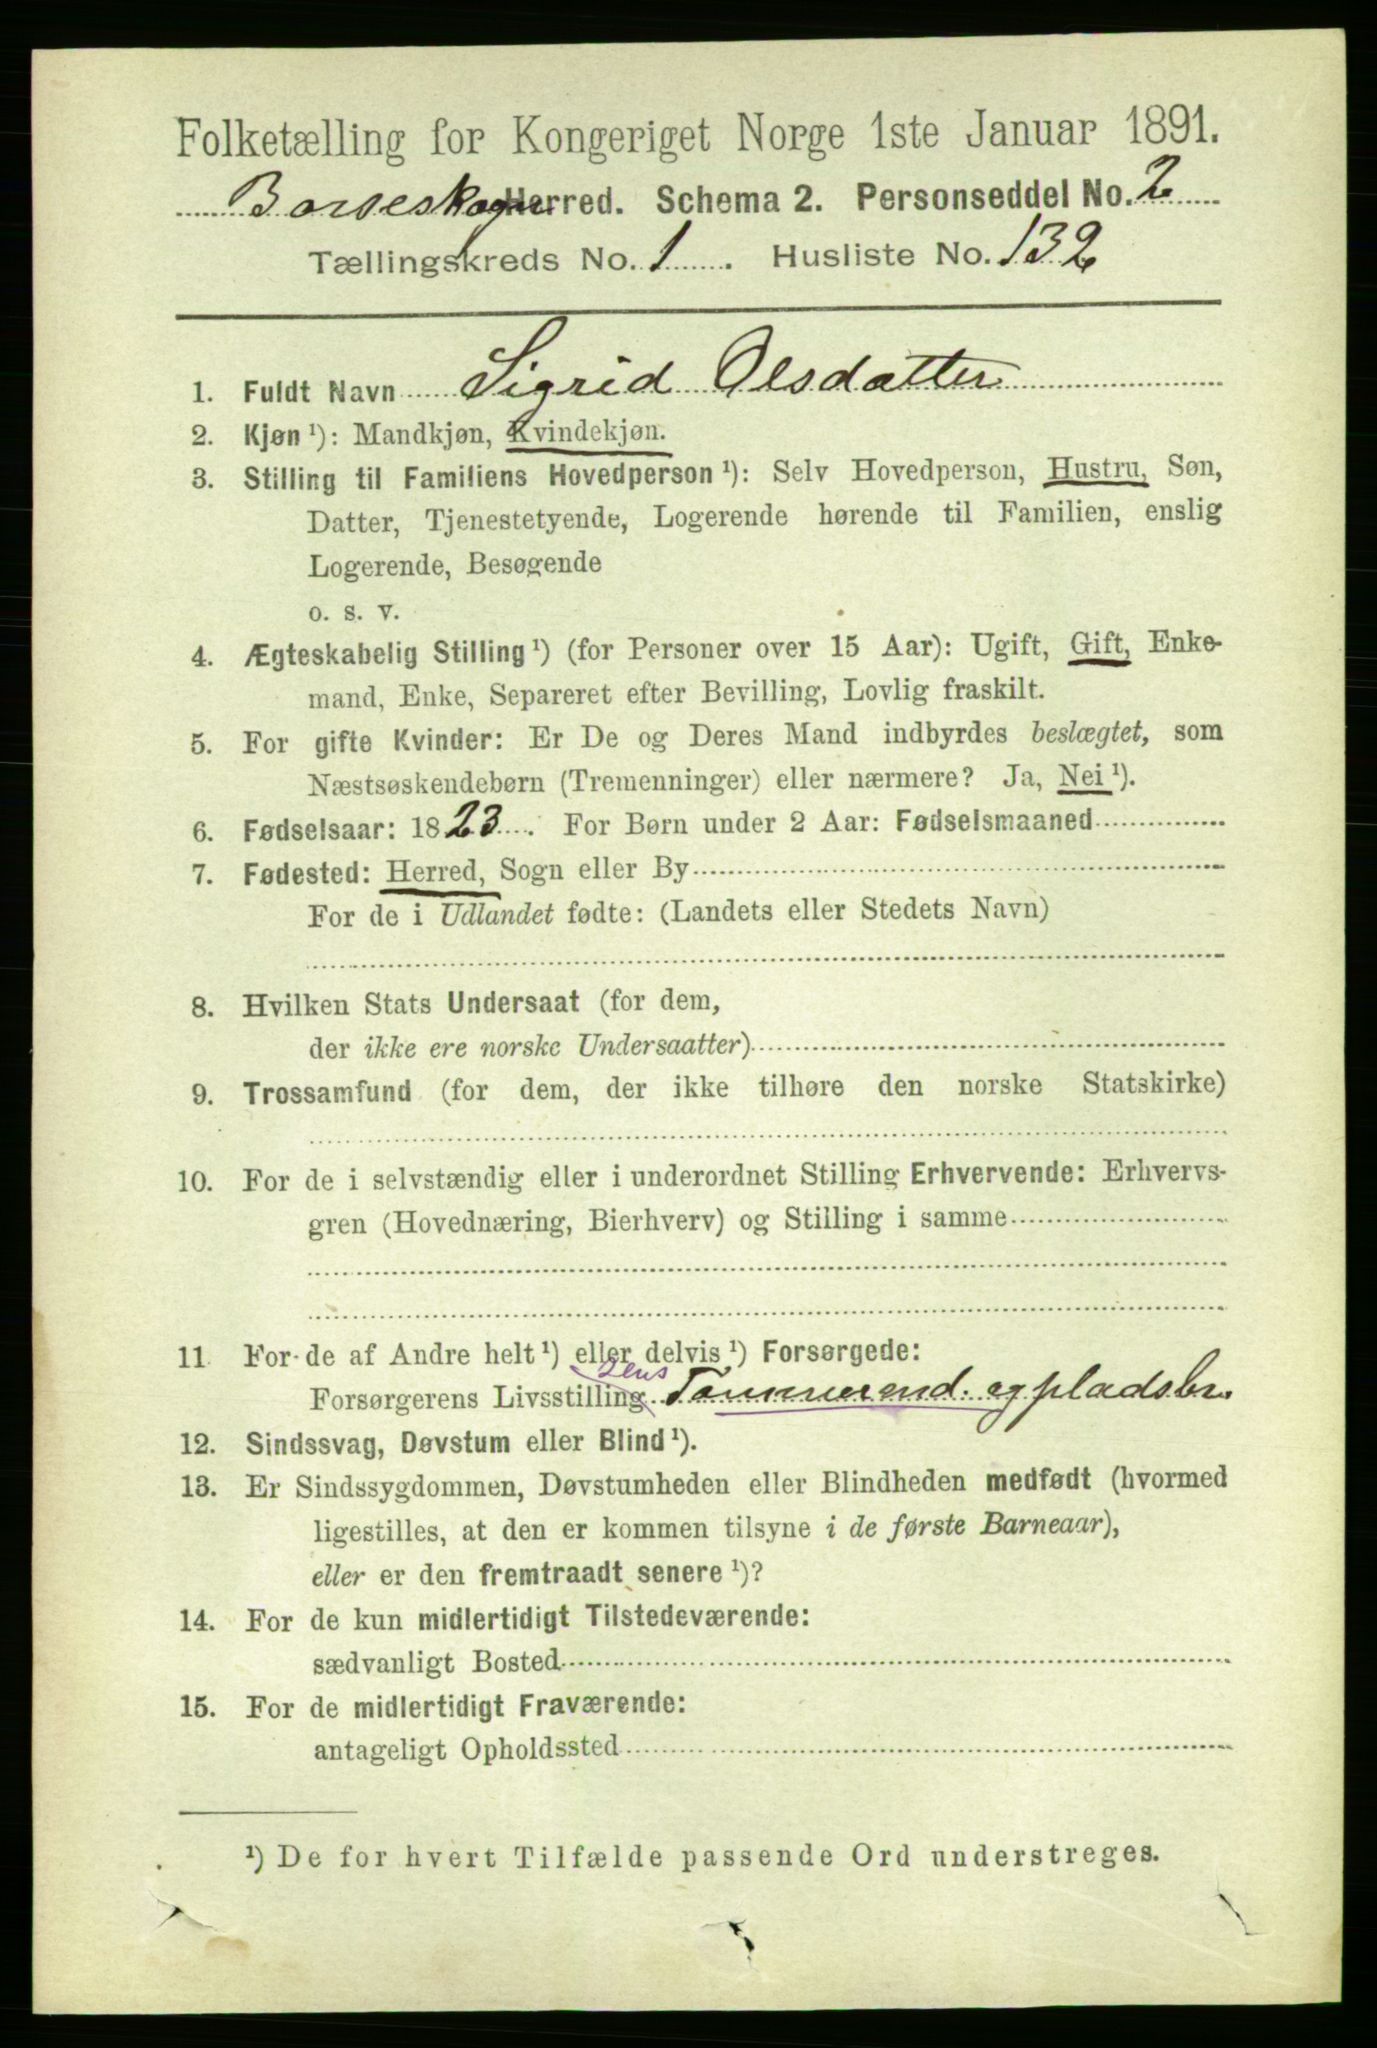 Folketælling for Kongeriget Norge 1ste Januar 1891.
Børseskogn Herred. Schema 2. Personseddel No. 2
Tællingskreds No. 1. Husliste No. 132
1. Fuldt Navn Sigrid Olsdatter
2. Kjøn ¹): Mandkjøn, Kvindekjøn.
3. Stilling til Familiens Hovedperson ¹): Selv Hovedperson, Hustru, Søn,
Datter, Tjenestetyende, Logerende hørende til Familien, enslig
Logerende, Besøgende
o. s. v.
4. Ægteskabelig Stilling ¹) (for Personer over 15 Aar): Ugift, Gift, Enke-
mand, Enke, Separeret efter Bevilling, Lovlig fraskilt.
5. For gifte Kvinder: Er De og Deres Mand indbyrdes beslægtet, som
Næstsøskendebørn (Tremenninger) eller nærmere? Ja, Nei ¹).
6. Fødselsaar: 1823. For Børn under 2 Aar: Fødselsmaaned
7. Fødested: Herred, Sogn eller By
For de i Udlandet fødte: (Landets eller Stedets Navn)
8. Hvilken Stats Undersaat (for dem,
der ikke ere norske Undersaatter)
9. Trossamfund (for dem, der ikke tilhøre den norske Statskirke)
10. For de i selvstændig eller i underordnet Stilling Erhvervende: Erhvervs-
gren (Hovednæring, Bierhverv) og Stilling i samme
11 For de af Andre helt ¹) eller delvis ¹) Forsørgede:
Forsørgerens Livsstilling Tømmermd. og pladsbr.
12. Sindssvag, Døvstum eller Blind ¹).
13. Er Sindssygdommen, Døvstumheden eller Blindheden medfødt (hvormed
ligestilles, at den er kommen tilsyne i de første Barneaar),
eller er den fremtraadt senere ¹)?
14. For de kun midlertidigt Tilstedeværende:
sædvanligt Bosted
15. For de midlertidigt Fraværende:
antageligt Opholdssted
¹) De for hvert Tilfælde passende Ord understreges.